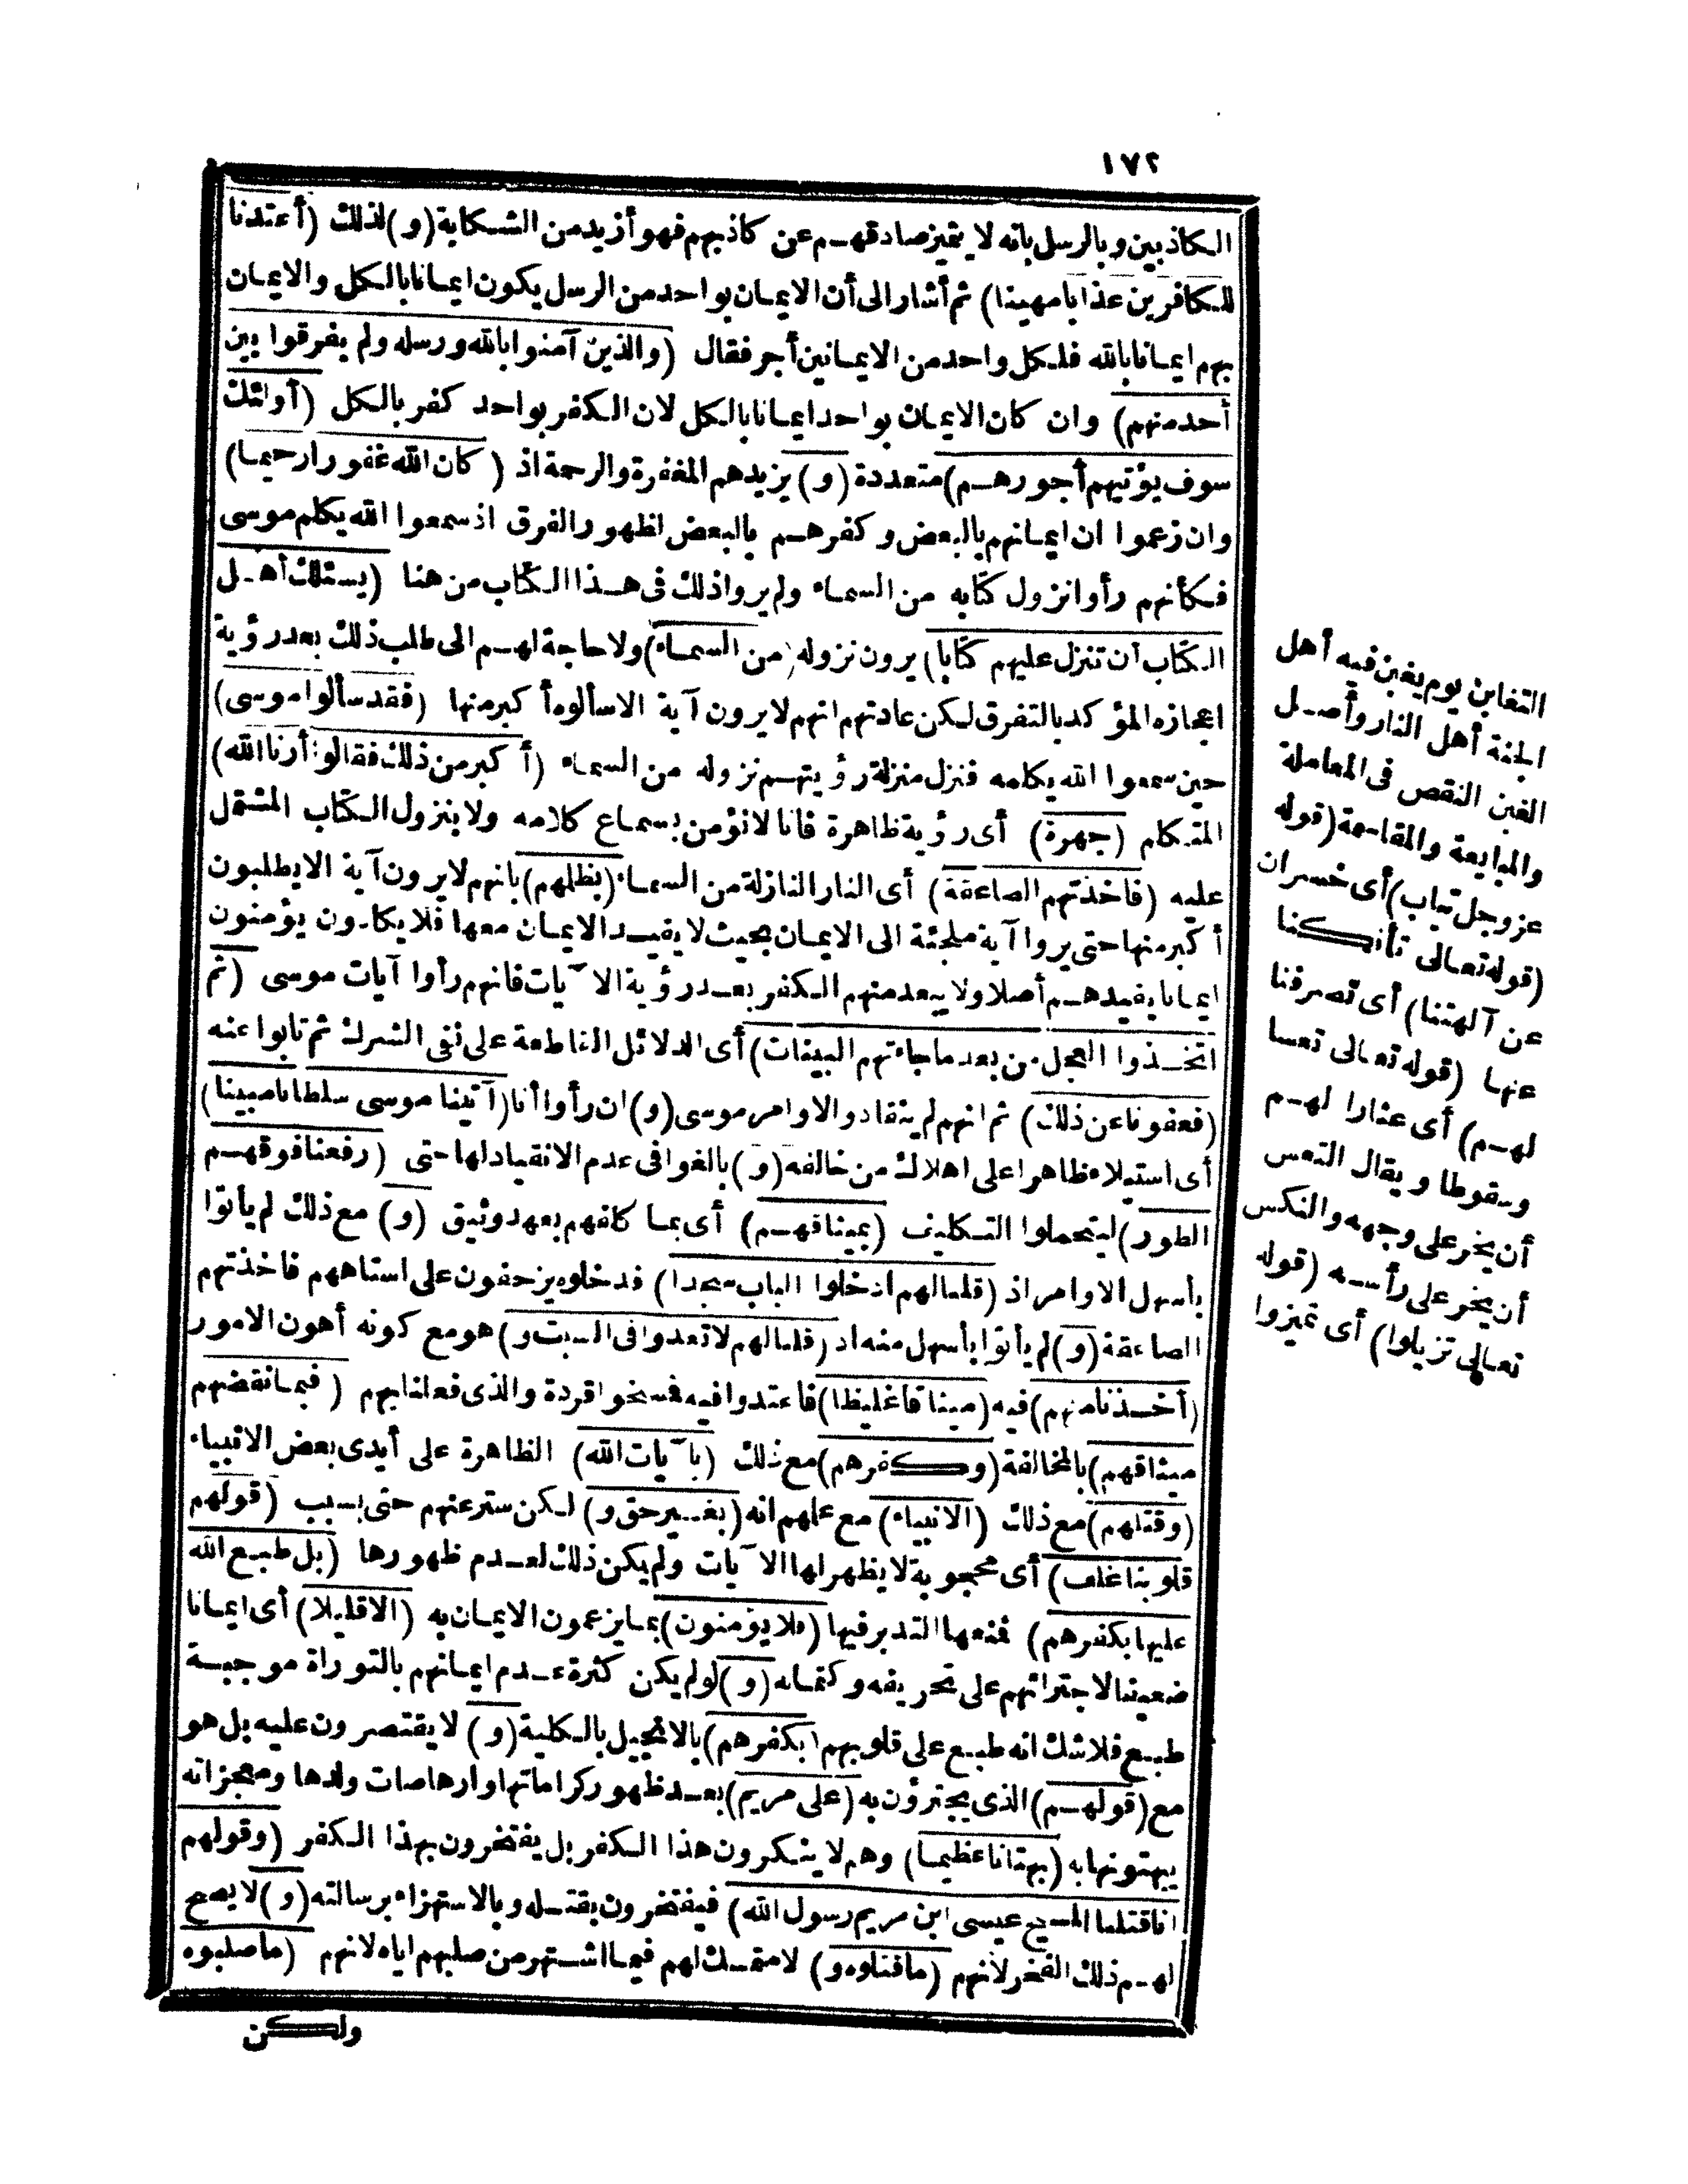 ١٧٢
الكاذبين وبالرسل بانه لا يتميز صادقهم عن كاذبهم فهو أزيد من الشكاية (و) لذلك (أعتدنا
للكافرين عذابا مهينا) ثم أشار الى أن الايمان بواحد من الرسل يكون ايمانا بالكل والايمان
بهم ايمانا بالله فلكل واحد من الايمانين أجر فقال (والذين آمنوا بالله ورسله ولم يفرقوا بين
أحد منهم) وان كان الايمان بواحد ايمانا بالكل لان الكفر بواحد كفر بالكل (أولئك
سوف يؤتيهم أجورهم) متعددة (و) يزيدهم المغفرة والرحمة اذ (كان الله غفورا رحيما)
وان زعموا ان ايمانهم بالبعض وكفرهم بالبعض لظهور الفرق اذ سمعوا الله يكلم موسى
فكأنهم رأوا نزول كتابه من السماء ولم يروا ذلك فى هذا الكتاب من هنا (يسئلك أهل
الكتاب أن تنزل عليهم كتابا) يرون نزوله (من السماء) ولا حاجة لهم الى طلب ذلك بعد رؤية
اعجازه المؤكد بالتفرق لكن عادتهم انهم لا يرون آية الا سألوا أكبر منها (فقد سألوا موسى)
حين سمعوا الله يكلمه فنزل منزلة رؤيتهم نزوله من السماء (أكبر من ذلك فقالوا أرنا الله)
المتكلم (جهرة) أى رؤية ظاهرة فانا لا نؤمن بسماع كلامه ولا بنزول الكتاب المشتمل
عليه (فاخذتهم الصاعقة) أى النار النازلة من السماء (بظلمهم) بانهم لا يرون آية الا يطلبون
أكبر منها حتى يروا آية ملجئة الى الايمان بحيث لا يفيد الايمان معها فلا يكادون يؤمنون
ايمانا يفيدهم أصلا ولا يبعد منهم الكفر بعد رؤية الآيات فانهم رأوا آيات موسى (ثم
اتخذوا العجل من بعد ما جاءتهم البينات) أى الدلائل القاطعة على نفى الشرك ثم تابوا عنه
(فعفونا عن ذلك) ثم انهم لم ينقادوا لاوامر موسى (و) ان رأوا أنا (آتينا موسى سلطانا مبينا)
أى استيلاء ظاهرا على اهلاك من خالفه (و) بالغوا فى عدم الانقياد لها حتى (رفعنا فوقهم
الطور) ليتحملوا التكليف (بميثاقهم) أى بما كافهم بعهد وثيق (و) مع ذلك لم يأتوا
بأسهل الاوامر اذ (قلنا لهم ادخلوا الباب سجدا) فدخلوه يزحفون على استاههم فاخذتهم
الصاعقة (و) لم يأتوا بأسهل منه اذ (قلنا لهم لا تعدوا فى السبت و) هو مع كونه أهون الامور
(أخذنا منهم) فيه (ميثاقا غليظا) فاعتدوا فيه فمسخوا قردة والذى فعلنا بهم (فبما نقضهم
ميثاقهم) بالمخالفة (وكفرهم) مع ذلك (بآيات الله) الظاهرة على أيدى بعض الانبياء
(وقتلهم) مع ذلك (الانبياء) مع علمهم انه (بغير حق و) لكن ستر عنهم حتى بسبب (قولهم
قلوبنا غلف) أى محجوبة لا يظهر لها الآيات ولم يكن ذلك لعدم ظهورها (بل طبع الله
عليها بكفرهم) فمنعها التدبر فيها (فلا يؤمنون) بما يزعمون الايمان به (الا قليلا) أى ايمانا
ضعيفا لاجترائهم على تحريفه وكتمانه (و) لو لم يكن كثرة عدم ايمانهم بالتوراة موجبة
طبع فلا شك انه طبع على قلوبهم (بكفرهم) بالانجيل بالكلية (و) لا يقتصرون عليه بل هو
مع (قولهم) الذى يجترؤن به (على مريم) بعد ظهور كراماتها وارهاصات ولدها ومعجزاته
يبهتونها به (بهتانا عظيما) وهم لا ينكرون هذا الكفر بل يفتخرون بهذا الكفر (وقولهم
انا قتلنا المسيح عيسى ابن مريم رسول الله) فيفتخرون بقتله وبالاستهزاء برسالته (و) لا يصح
لهم ذلك الفخر لانهم (ما قتلوه و) لا متمسك لهم فيما اشتهر من صلبهم اياه لانهم (ما صلبوه
ولكن
التغابن يوم يغبن فيه أهل
الجنة أهل النار وأصل
الغبن النقص فى المعاملة
والمبايعة والمقاسمة (قوله
عز وجل تباب) أى خسران
(قوله تعالى تأفكنا
عن آلهتنا) أى تصرفنا
عنها (قوله تعالى تعسا
لهم) أى عثارا لهم
وسقوطا ويقال التعس
أن يخر على وجهه والنكس
أن يخر على رأسه (قوله
تعالى تزيلوا) أى تميزوا